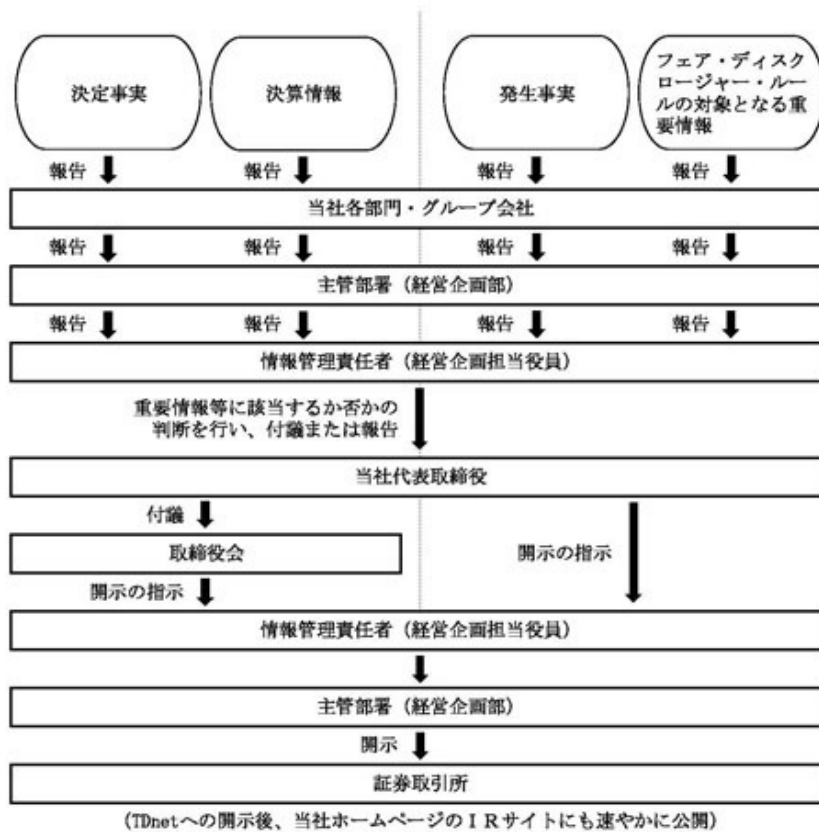 決定事実
決算情報
発生事実
フェア・ディスク
ロージャー・ルー
ルの対象となる重
要情報
報告
報告
報告
報告
当社各部門・グループ会社
報告
報告
報告
報告
主管部署（経営企画部）
報告
報告
報告
報告
情報管理責任者（経営企画担当役員）
重要情報等に該当するか否かの
判断を行い、付議または報告
当社代表取締役
付議
取締役会
開示の指示
開示の指示
情報管理責任者（経営企画担当役員）
主管部署（経営企画部）
開示
証券取引所
(TDnetへの開示後、当社ホームページのＩＲサイトにも速やかに公開)